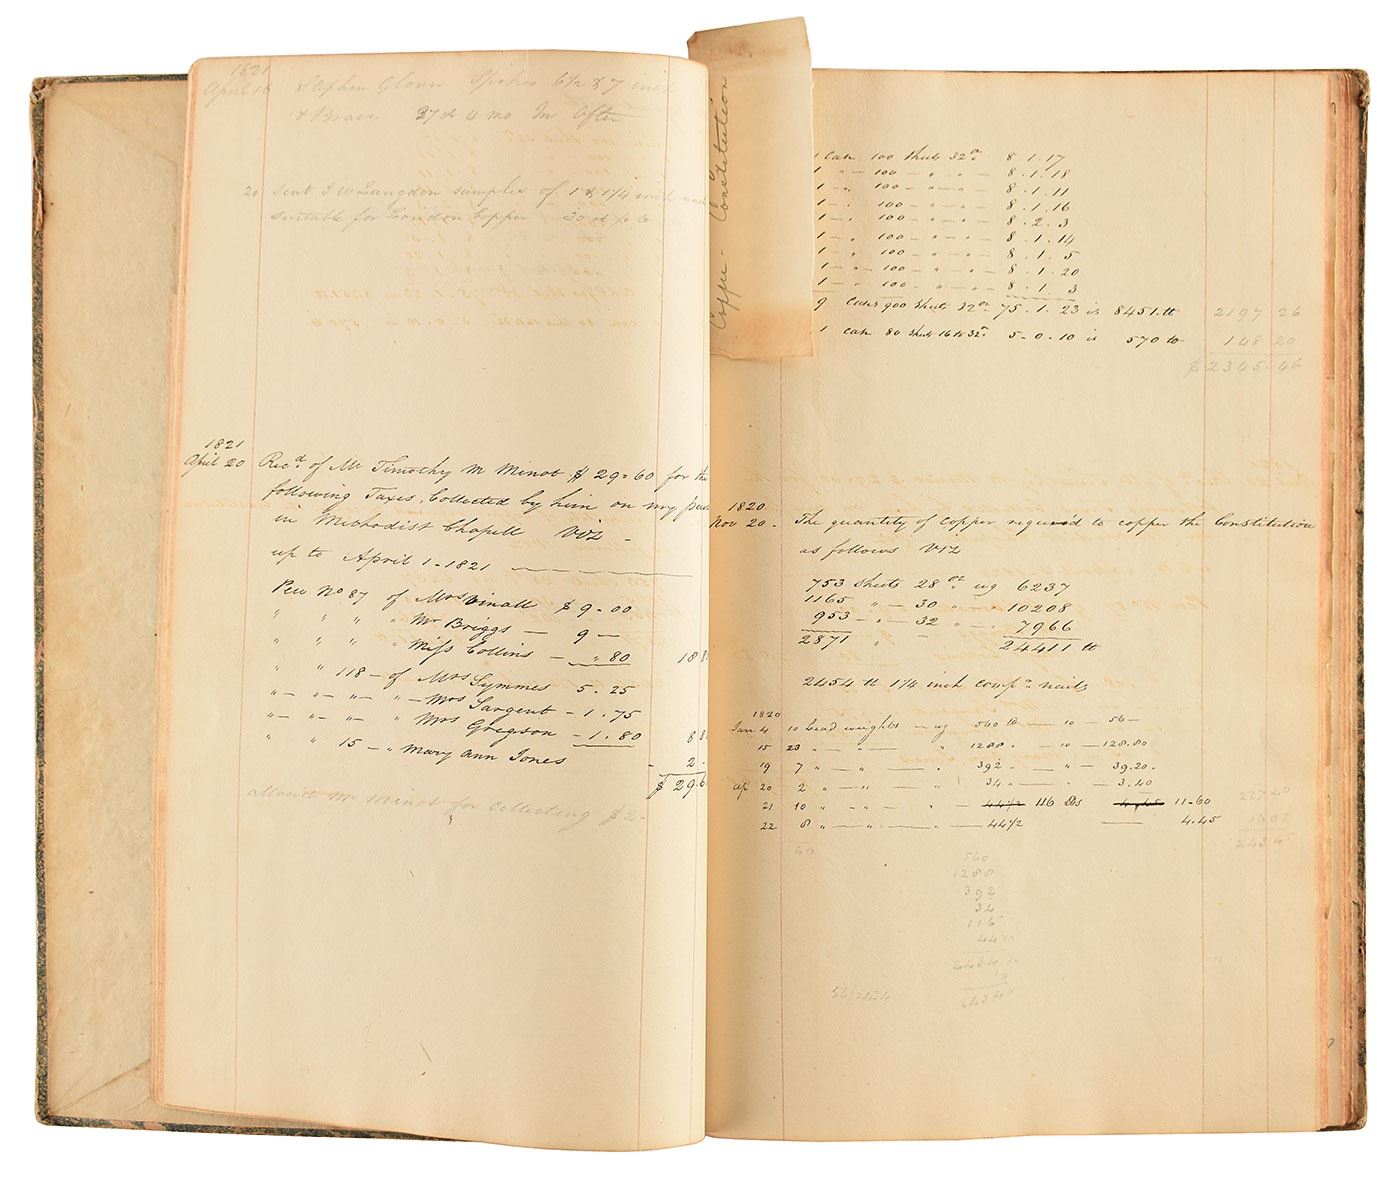 1821
April 16 Stephen Glover Spikes 6½ & 7 inch
37 cts 4 mo
20 Sent J W Langdon samples of 1 & 1¼ inch
suitable for London Copper 30 cts
1821
April 20 Recd. of Mr Timothy M Minot $ 29=60 for the
following Taxes, Collected by him on my pews
in Methodist Chapell Viz -
up to April 1-1821
Pew No 87 of Mrs Vinall $ 9-00
" " " " Mr Briggs — 9 —
" " " " Miss Collins — " 80 18 8
" " 118 – of Mrs Symmes 5.25
" – " – " – " – Mrs Sargent – 1.75
" – " – " – " Mrs Gregson – 1.80 8 8
" " 15 – " Mary Ann Jones 2 -
$ 29.6
allow'd Mr Minot for collecting $ 2-
Copper - Constitution
1 Case 100 Sheets 32oz 8.1.17
1 " – 100 – " – " – 8.1.18
1 – " 100 – " – " – 8.1.11
1 – " 100 – " – " – 8.1.16
1 – " 100 – " – " – 8.2.3
1 – " 100 – " – " – 8.1.14
1 – " 100 – " – " – 8.1.5
1 – " – 100 – " – " – 8.1.20
1 – " – 100 – " – " – 8.1.3
9 Cases 900 Sheets 32oz 75.1.23 is 8451 lb 2197 26
1 case 80 Sheets 16 to 32oz 5-0-10 is 570 lb 148 20
$ 2345.46
1820
Nov 20 - The quantity of copper requir'd to copper the Constitution
as follows Viz
753 Sheets 28oz wg 6237
1165 " – 30 " – 10208
953 – " – 32 " – 7966
2871 " 24411 lb
2454 lb 1¼ inch compn nails
1820
Jan 4 10 Lead weights – wg 560 lb — 10 – 56 –
15 23 " – " — " 1288 " — 10 — 128.80
19 7 " – " — " — 392 – — " – 39.20 -
Ap 20 2 " – " — " — 34 " — " — 3.40
21 10 " – " – " – " – 44½ 116 lbs 4.45 11-60
22 8 " – " — " — 44½ — 4.45
60
560
1288
392
34
116
44½
2434½
10
24340
56/2434
2434